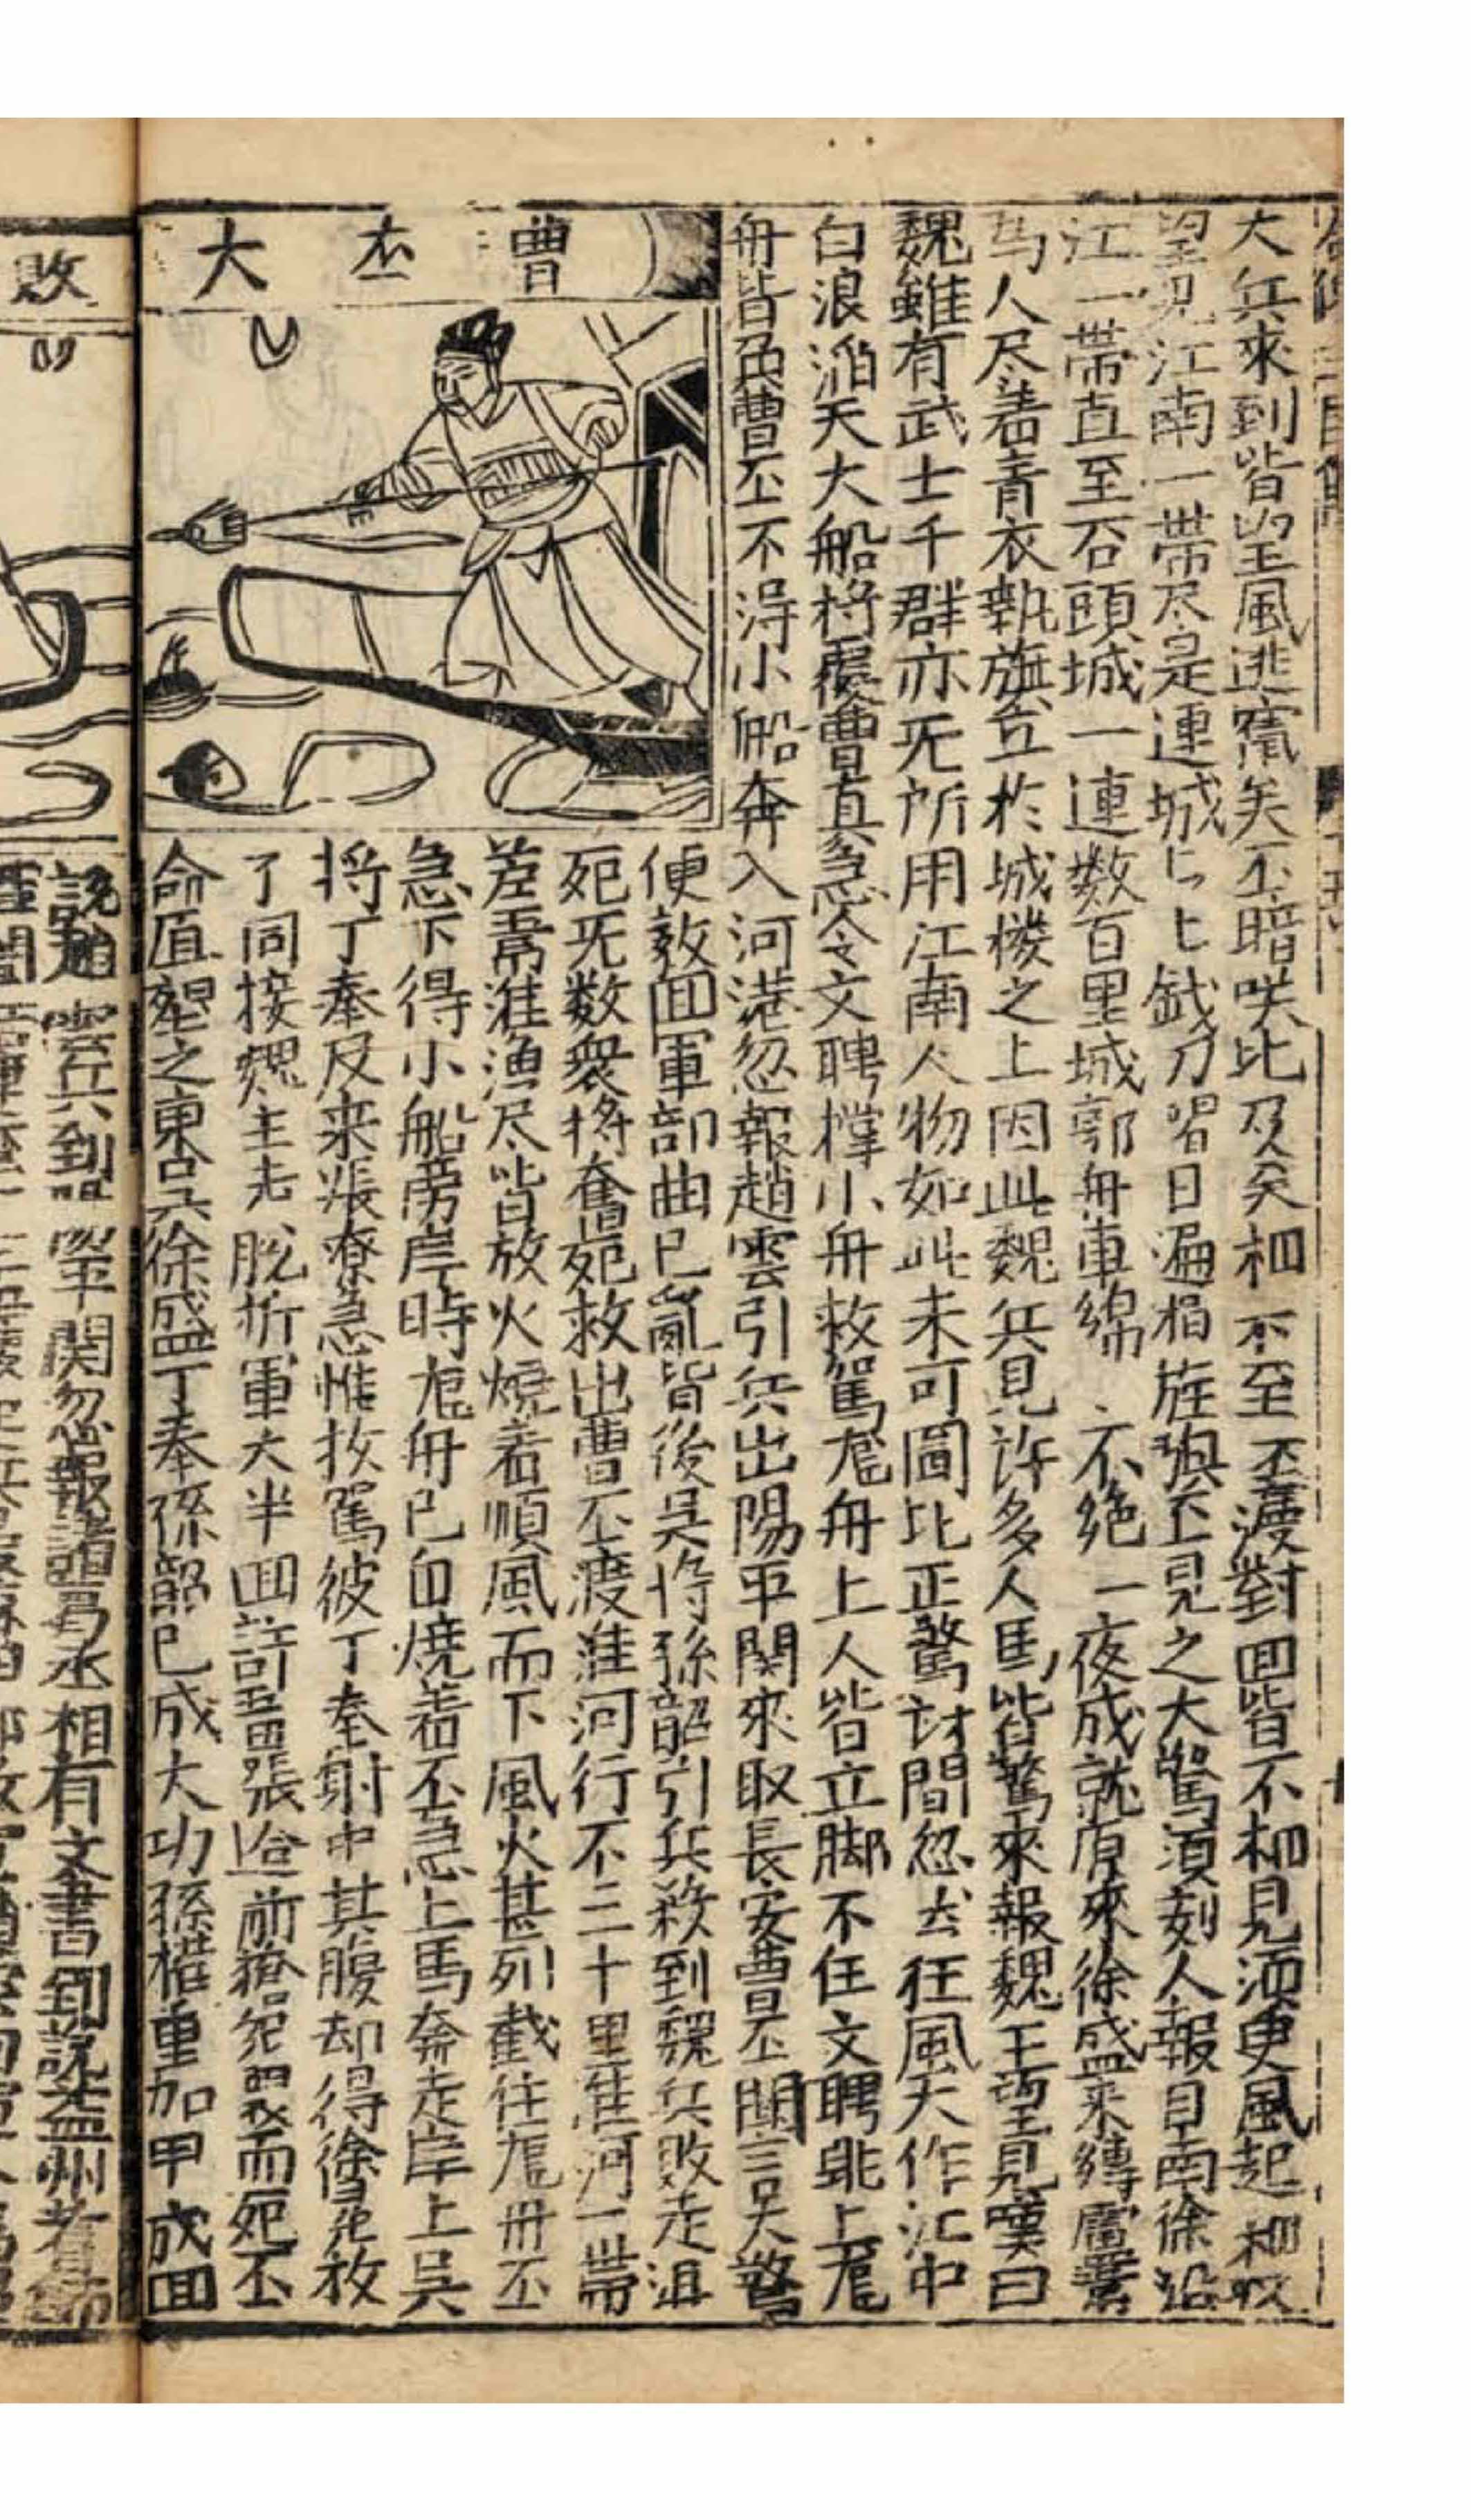 大兵來到皆望風逃竄矣丕暗咲比及矣相不至丕渡對囬皆不相見須臾風起相収
望見江南一帶尽是連城匕上鎗刀耀日遍揷旌旗丕見之大驚須刻人報自南徐沿
江一帶直至石頭城一連数百里城郭舟車綿〻不絶一夜成就原來徐盛来縛蘆葦
為人尽着青衣執旗立於城楼之上因此魏兵見許多人馬皆驚來報魏王望見嘆曰
魏雖有武士千群亦无所用江南人物如此未可圖也正驚訝間忽然狂風大作江中
白浪滔天大船将覆曹真急令文聘撑小舟救駕龍舟上人皆立脚不住文聘跳上龍
舟皆負曹丕不得小船奔入河港忽報趙雲引兵出陽平関來取長安曹丕聞言失驚
便教囬軍部曲已亂皆後吴将孫韶引兵殺到魏兵敗走沮
死无数衆將奮死救出曹丕渡淮河行不三十里淮河一帶
差蘆淮漁尽皆放火燒着順風而下風火甚烈截住龍舟丕
急下得小船傍岸時龍舟已自燒着丕急上馬奔走岸上吴
将丁奉殺来張遼急惟救駕彼丁奉射中其腹却得徐晃救
了同接魏主走脱折軍大半囬許昌張遼前瘡兜裂而死丕
命厚塟之東吴徐盛丁奉孫韶已成大功孫權重加甲成囬
大 丕 曹
敗
說趙雲兵到陽平関忽報諸葛丞相有文書到説益州耆帥